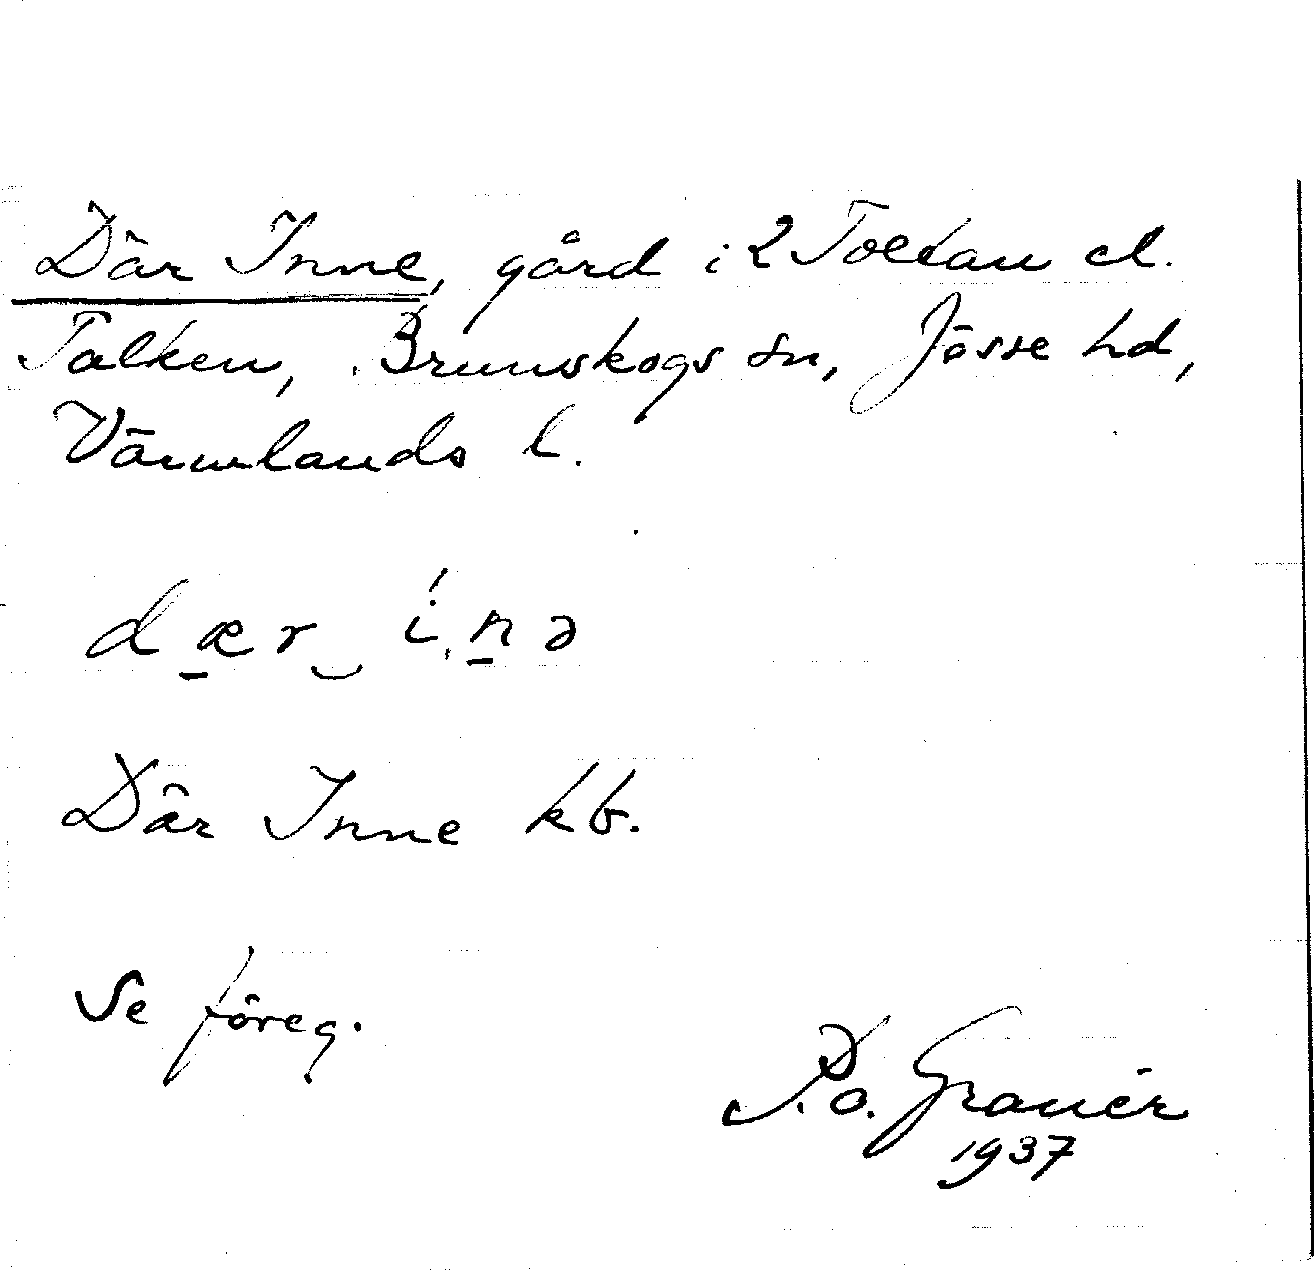 Där Inne, gård i 2 Toltan el.
Talken, Brunskogs sn, Jösse hd,
Värmlands l.
dær‿ ínə
Där Inne kb.
Se föreg.
P.o. Granér
1937